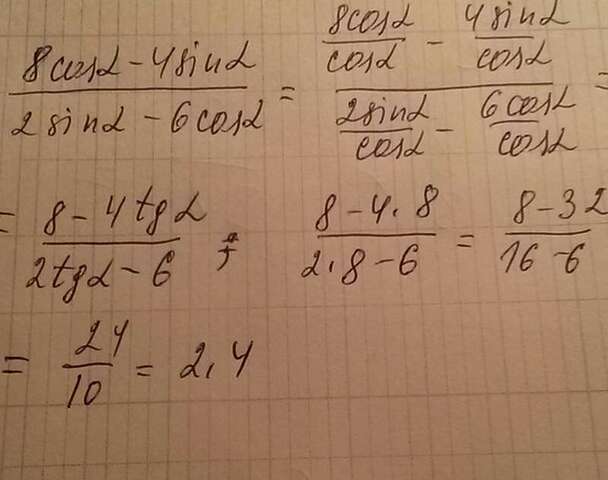 (8cosα - 4sinα)/(2sinα - 6cosα) = (8cosα/cosα - 4sinα/cosα)/(2sinα/cosα - 6cosα/cosα) =
= (8 - 4tgα)/(2tgα - 6) ; (8 - 4·8)/(2·8 - 6) = (8 - 32)/(16 - 6)
= 24/10 = 2,4